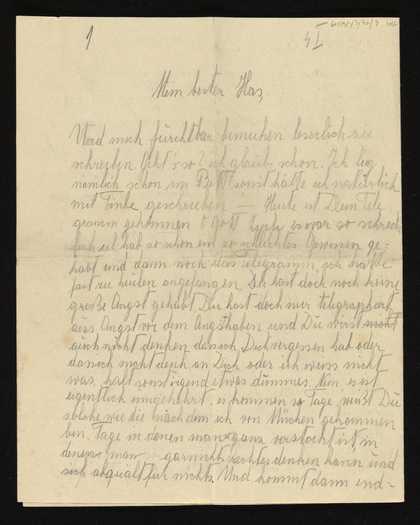 1
Mein bester Has,
Werd mich furchtbar bemühen leserlich zu
schreiben. Geht's so? ich glaub schon. Ich lieg
nämlich schon im Bett sonst hätte ich natürlich
mit Tinte geschrieben — Heute ist Dein Tele
gramm gekommen O Gott es war so schreck
lich ich hab so schon ein so schlechtes Gewissen ge-
habt und dann noch das Telegramm, ich hätte
fast zu heulen angefangen. Du hast doch noch keine
große Angst gehabt Du hast doch nur telegraphiert
aus Angst vor dem Angsthaben und Du wirst
auch nicht denken dass ich Dich vergessen hab oder
dass ich nicht denk an Dich oder ich weiss nicht
was, halt sonst irgend etwas dummes. Nein es ist
eigentlich umgekehrt, es kommen so Tage weisst Du
solche wie die nachdem ich von München gekommen
bin, Tage in denen man ganz verstockt ist, in
denen man garnichts rechtes denken kann und
sich abquält für nichts. Und kommt dann end-